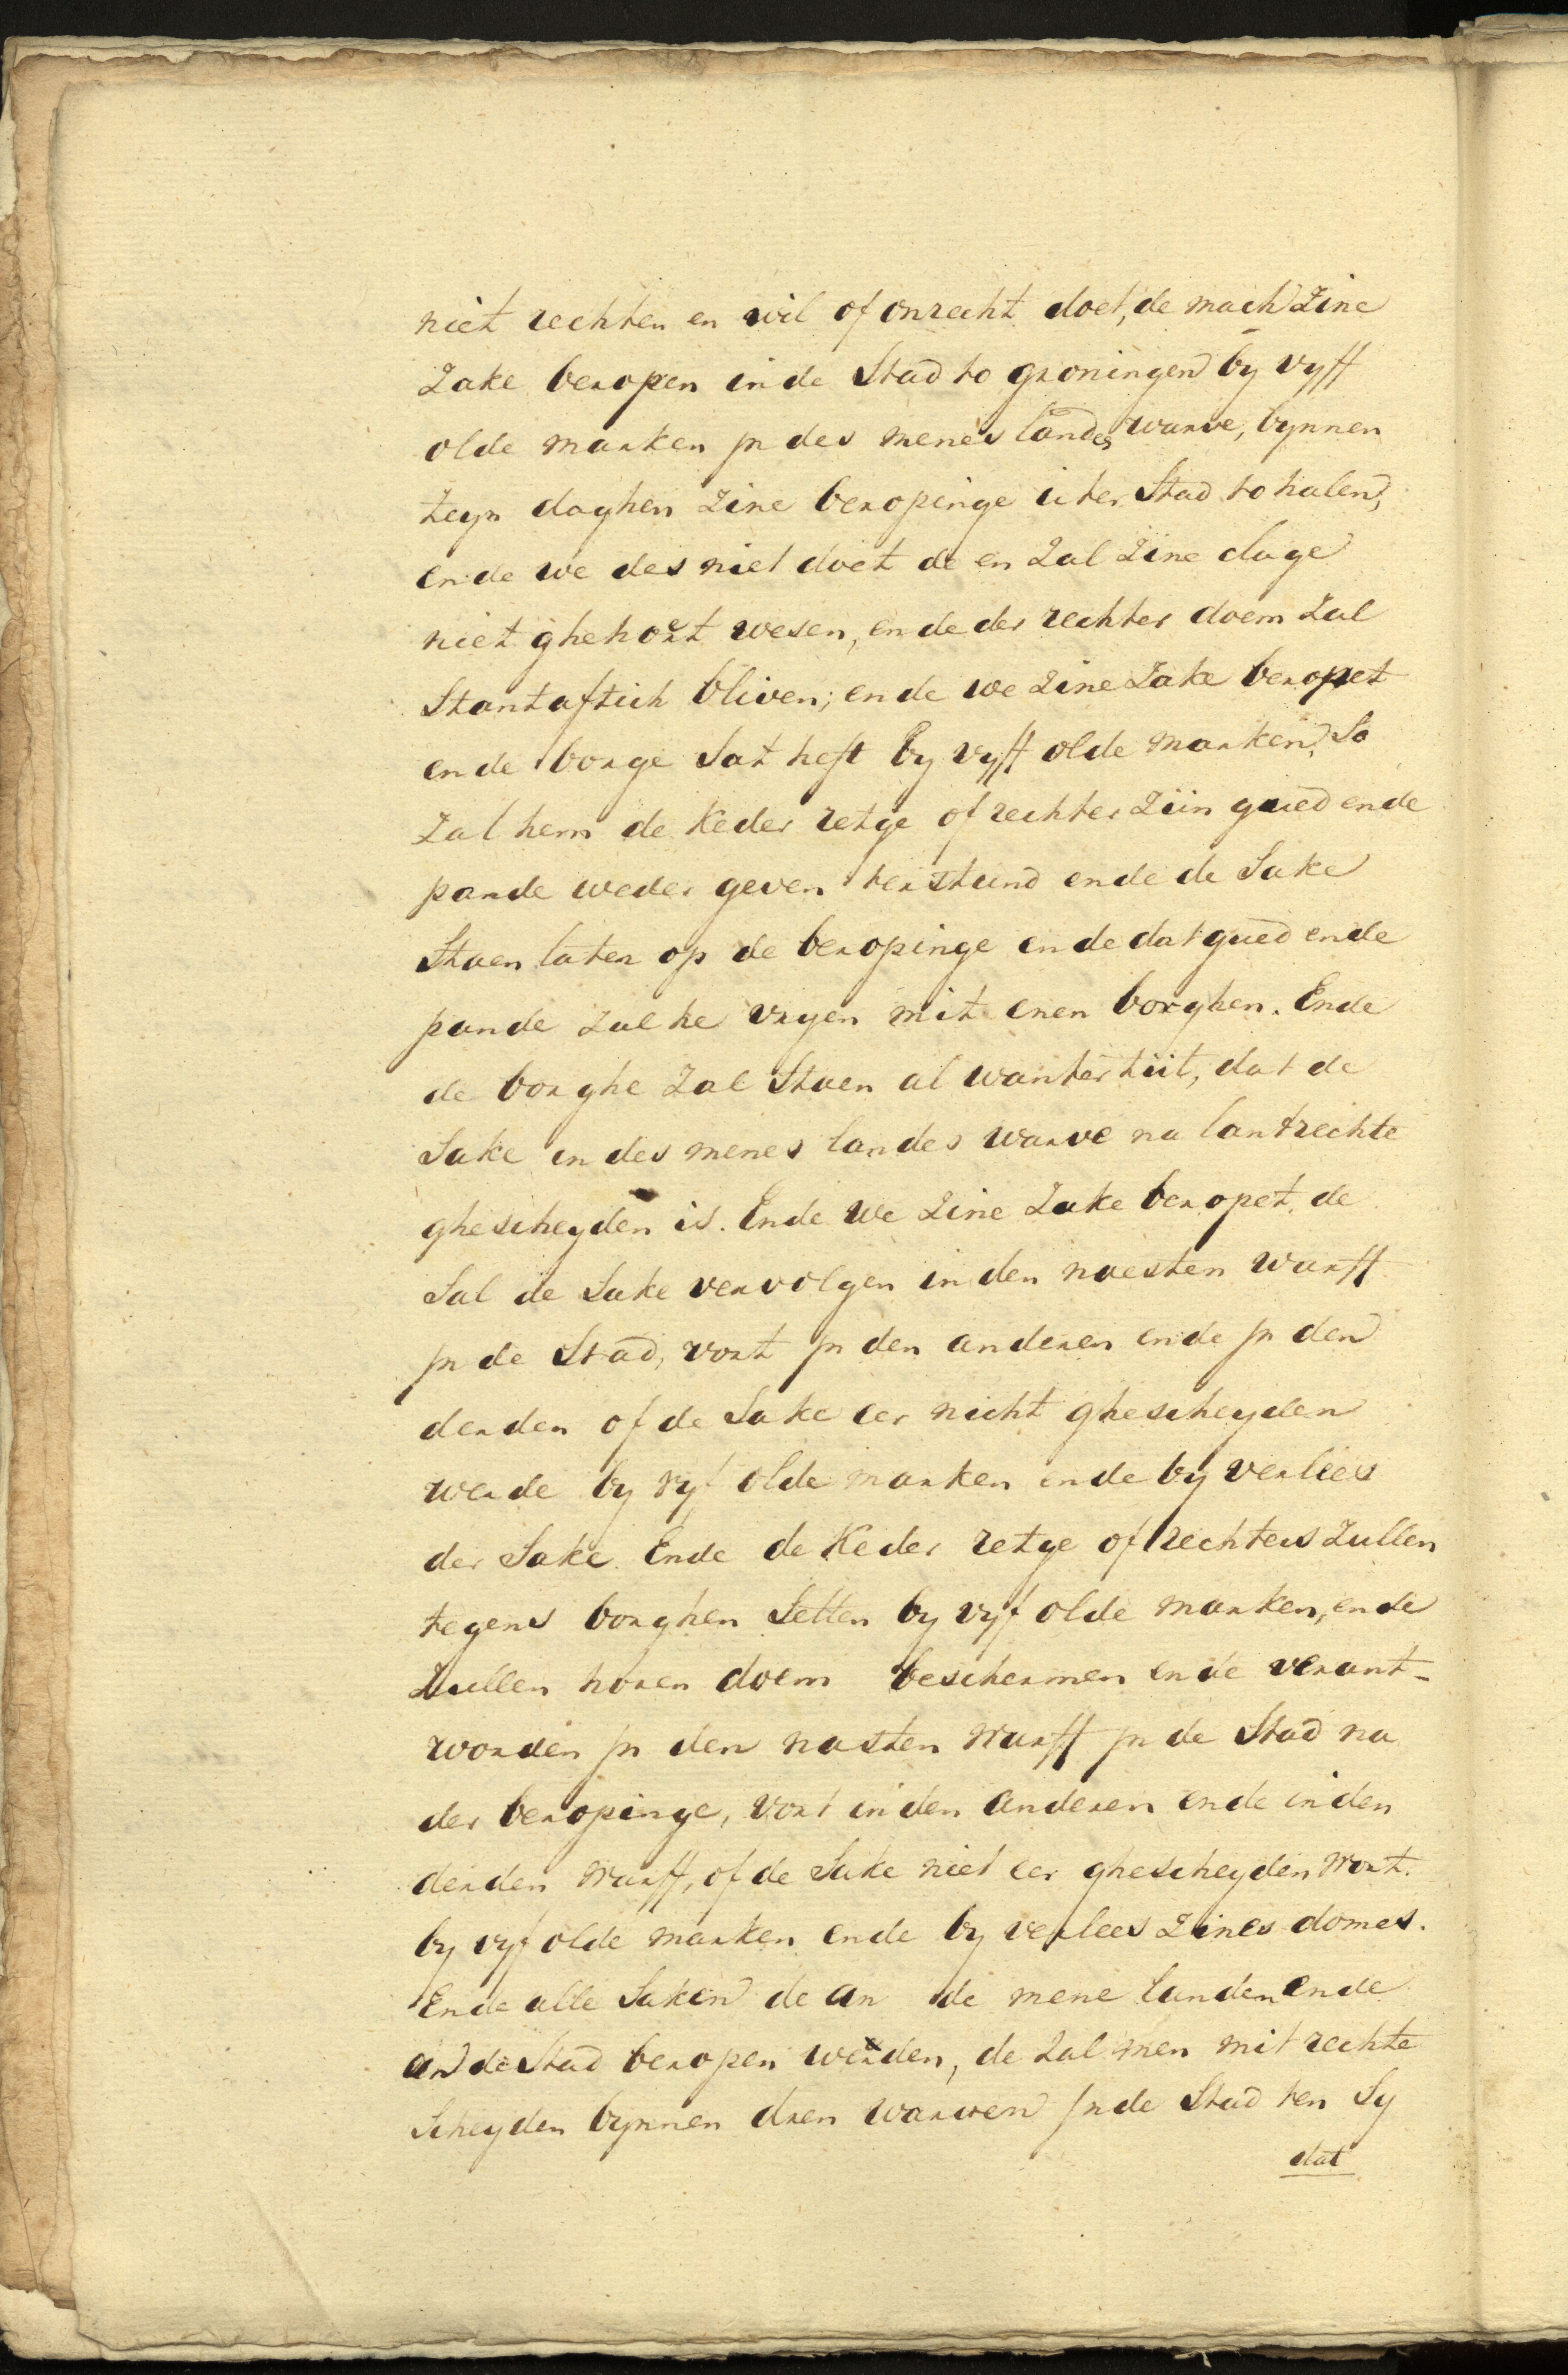 niet rechten en wil of onrecht doet, de mach Zine
Zake beropen in de Stad to groningen by vyff
olde marken jn des menes landes warve, bynnen
teyn daghen Zine beropinge uter Stad to halen,
ende we des niet doet de en Zal Zine clage
niet ghehort wesen, ende der rechter doem Zal
Stantaftich bliven; ende we Zine Zake beropet
ende borge Sat heft by vyff olde marken, So
Zal hem de Keder retge of rechter Ziin gued ende
pande weder geven terstund ende de Sake
Staen laten op de beropinge ende dat gued ende
pande Zal he vryen mit enen borghen. Ende
de borghe Zal Staen al wanter tiit, dat de
Sake in des menes landes warve na lantrechte
ghescheyden is. Ende we Zine Zake beropet, de
Sal de Sake vervolgen in den naesten warff
jn de Stad, vort jn den anderen ende jn den
derden of de Sake eer nicht ghescheyden
werde by vyf olde marken ende by verlees
der Sake. Ende de Keder retge of rechters Zullen
tegens borghen Setten by vyf olde marken, ende
Zullen horen doem beschermen ende verant-
worden jn den nasten warff jn de Stad na
der beropinge, vort in den anderen ende in den
derden warff, of de Sake niet eer ghescheyden wort.
by vyf olde marken ende by verlees Zines domes.
Ende alle Saken de an de mene landen ende
an de Stad beropen werden, de Zal men mit rechte
Scheyden bynnen dren warven jn de Stad ten Sy
dat